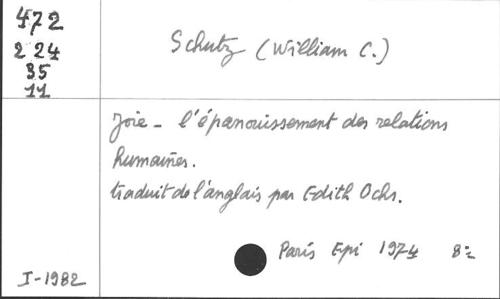 472
2 24
35
11
Schutz (William C.)
Joie - l'épanouissement des relations
humaines.
traduit de l'anglais par Edith Ochs.
Paris Epi 1974 8°
I-1982